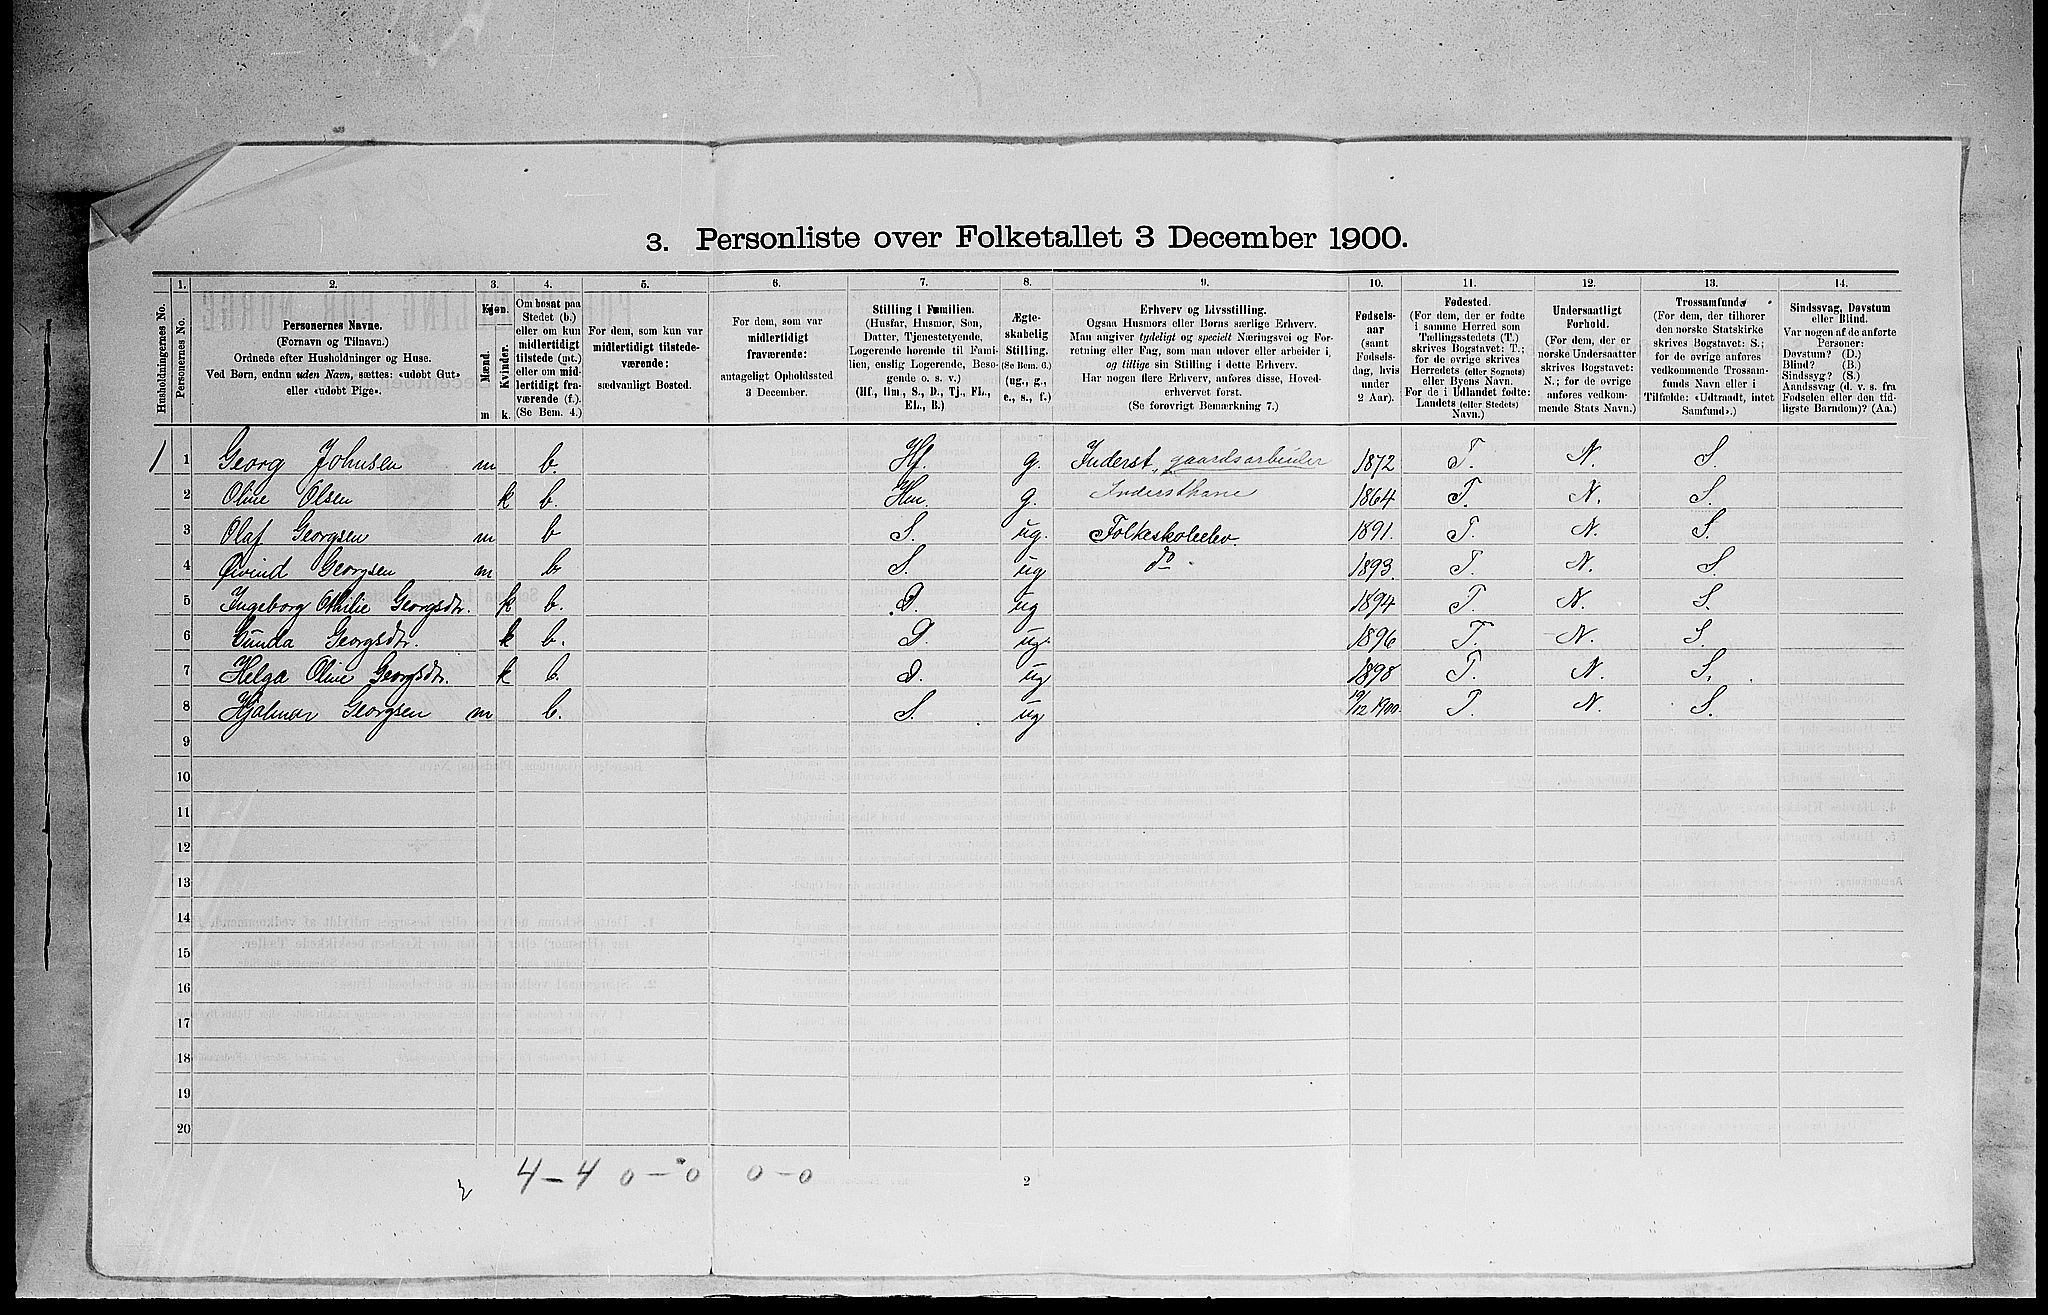 3. Personliste over Folketallet 3 December 1900.
1. 2. 3. 4. 5. 6. 7. 8. 9. 10. 11. 12. 13. 14.
Husholdningernes No.
Personernes No.
Personernes Navne.
(Fornavn og Tilnavn.)
Ordnede efter Husholdninger og Huse.
Ved Børn, endnu uden Navn, sættes: «udøbt Gut»
eller «udøbt Pige».
Kjøn.
Mænd.
Kvinder.
m k.
Om bosat paa
Stedet (b.)
eller om kun
midlertidigt
tilstede (mt.)
eller om mid-
lertidigt fra-
værende (f.).
(Se Bem. 4.)
For dem, som kun var
midlertidigt tilstede-
værende:
sædvanligt Bosted.
For dem, som var
midlertidigt
fraværende:
antageligt Opholdssted
3 December.
Stilling i Familien.
(Husfar, Husmor, Søn,
Datter, Tjenestetyende,
Logerende hørende til Fami-
lien, enslig Logerende, Besø-
gende o. s. v.)
(Hf., Hm., S., D., Tj., FL.,
EL., B.)
Ægte-
skabelig
Stilling.
(Se Bem. 6.)
(ug., g.,
e., s., f.)
Erhverv og Livsstilling.
Ogsaa Husmors eller Børns særlige Erhverv.
Man angiver tydeligt og specielt Næringsvei og For-
retning eller Fag, som man udøver eller arbeider i,
og tillige sin Stilling i dette Erhverv.
Har nogen flere Erhverv, anføres disse, Hoved-
erhvervet først.
(Se forøvrigt Bemærkning 7.)
Fødsels-
aar
(samt
Fødsels-
dag, hvis
under
2 Aar).
Fødested.
(For dem, der er fødte
i samme Herred som
Tællingsstedets (T.)
skrives Bogstavet: T.;
for de øvrige skrives
Herredets (eller Sognets)
eller Byens Navn.
For de i Udlandet fødte:
Landets (eller Stedets)
Navn.)
Undersaatligt
Forhold.
(For dem, der er
norske Undersaatter
skrives Bogstavet:
N.; for de øvrige
anføres vedkom-
mende Stats Navn.)
Trossamfund.
(For dem, der tilhører
den norske Statskirke
skrives Bogstavet: S.;
for de øvrige anføres
vedkommende Trossam-
funds Navn eller i
Tilfælde: «Udtraadt, intet
Samfund».)
Sindssvag, Døvstum
eller Blind.
Var nogen af de anførte
Personer:
Døvstum? (D.)
Blind? (B.)
Sindssyg? (S.)
Aandssvag (d. v. s. fra
Fødselen eller den tid-
ligste Barndom)? (Aa.)
1 1 Georg Johnsen m b. Hf. g. Inderst, gaardsarbeider 1872 T. N. S.
2 Oline Olsen k b. Hm g. Indersthone 1864 T. N. S.
3 Olaf Georgsen m b S. ug. Folkeskoleelev. 1891. T. N. S.
4 Øivind Georgsen m b S. ug do 1893. T. N. S.
5 Ingeborg Othilie Georgsdtr. k b. D. ug 1894 T. N. S.
6 Gunda Georgsdtr. k b. D. ug. 1896 T. N. S.
7 Helga Oline Georgsdtr. k b. D. ug 1898 T. N. S.
8 Hjalmar Georgsen m b. S. ug 19/12 1900. T. N. S.
9
10
11
12
13
14
15
16
17
18
19
20
4 – 4 0 – 0 0 – 0
2